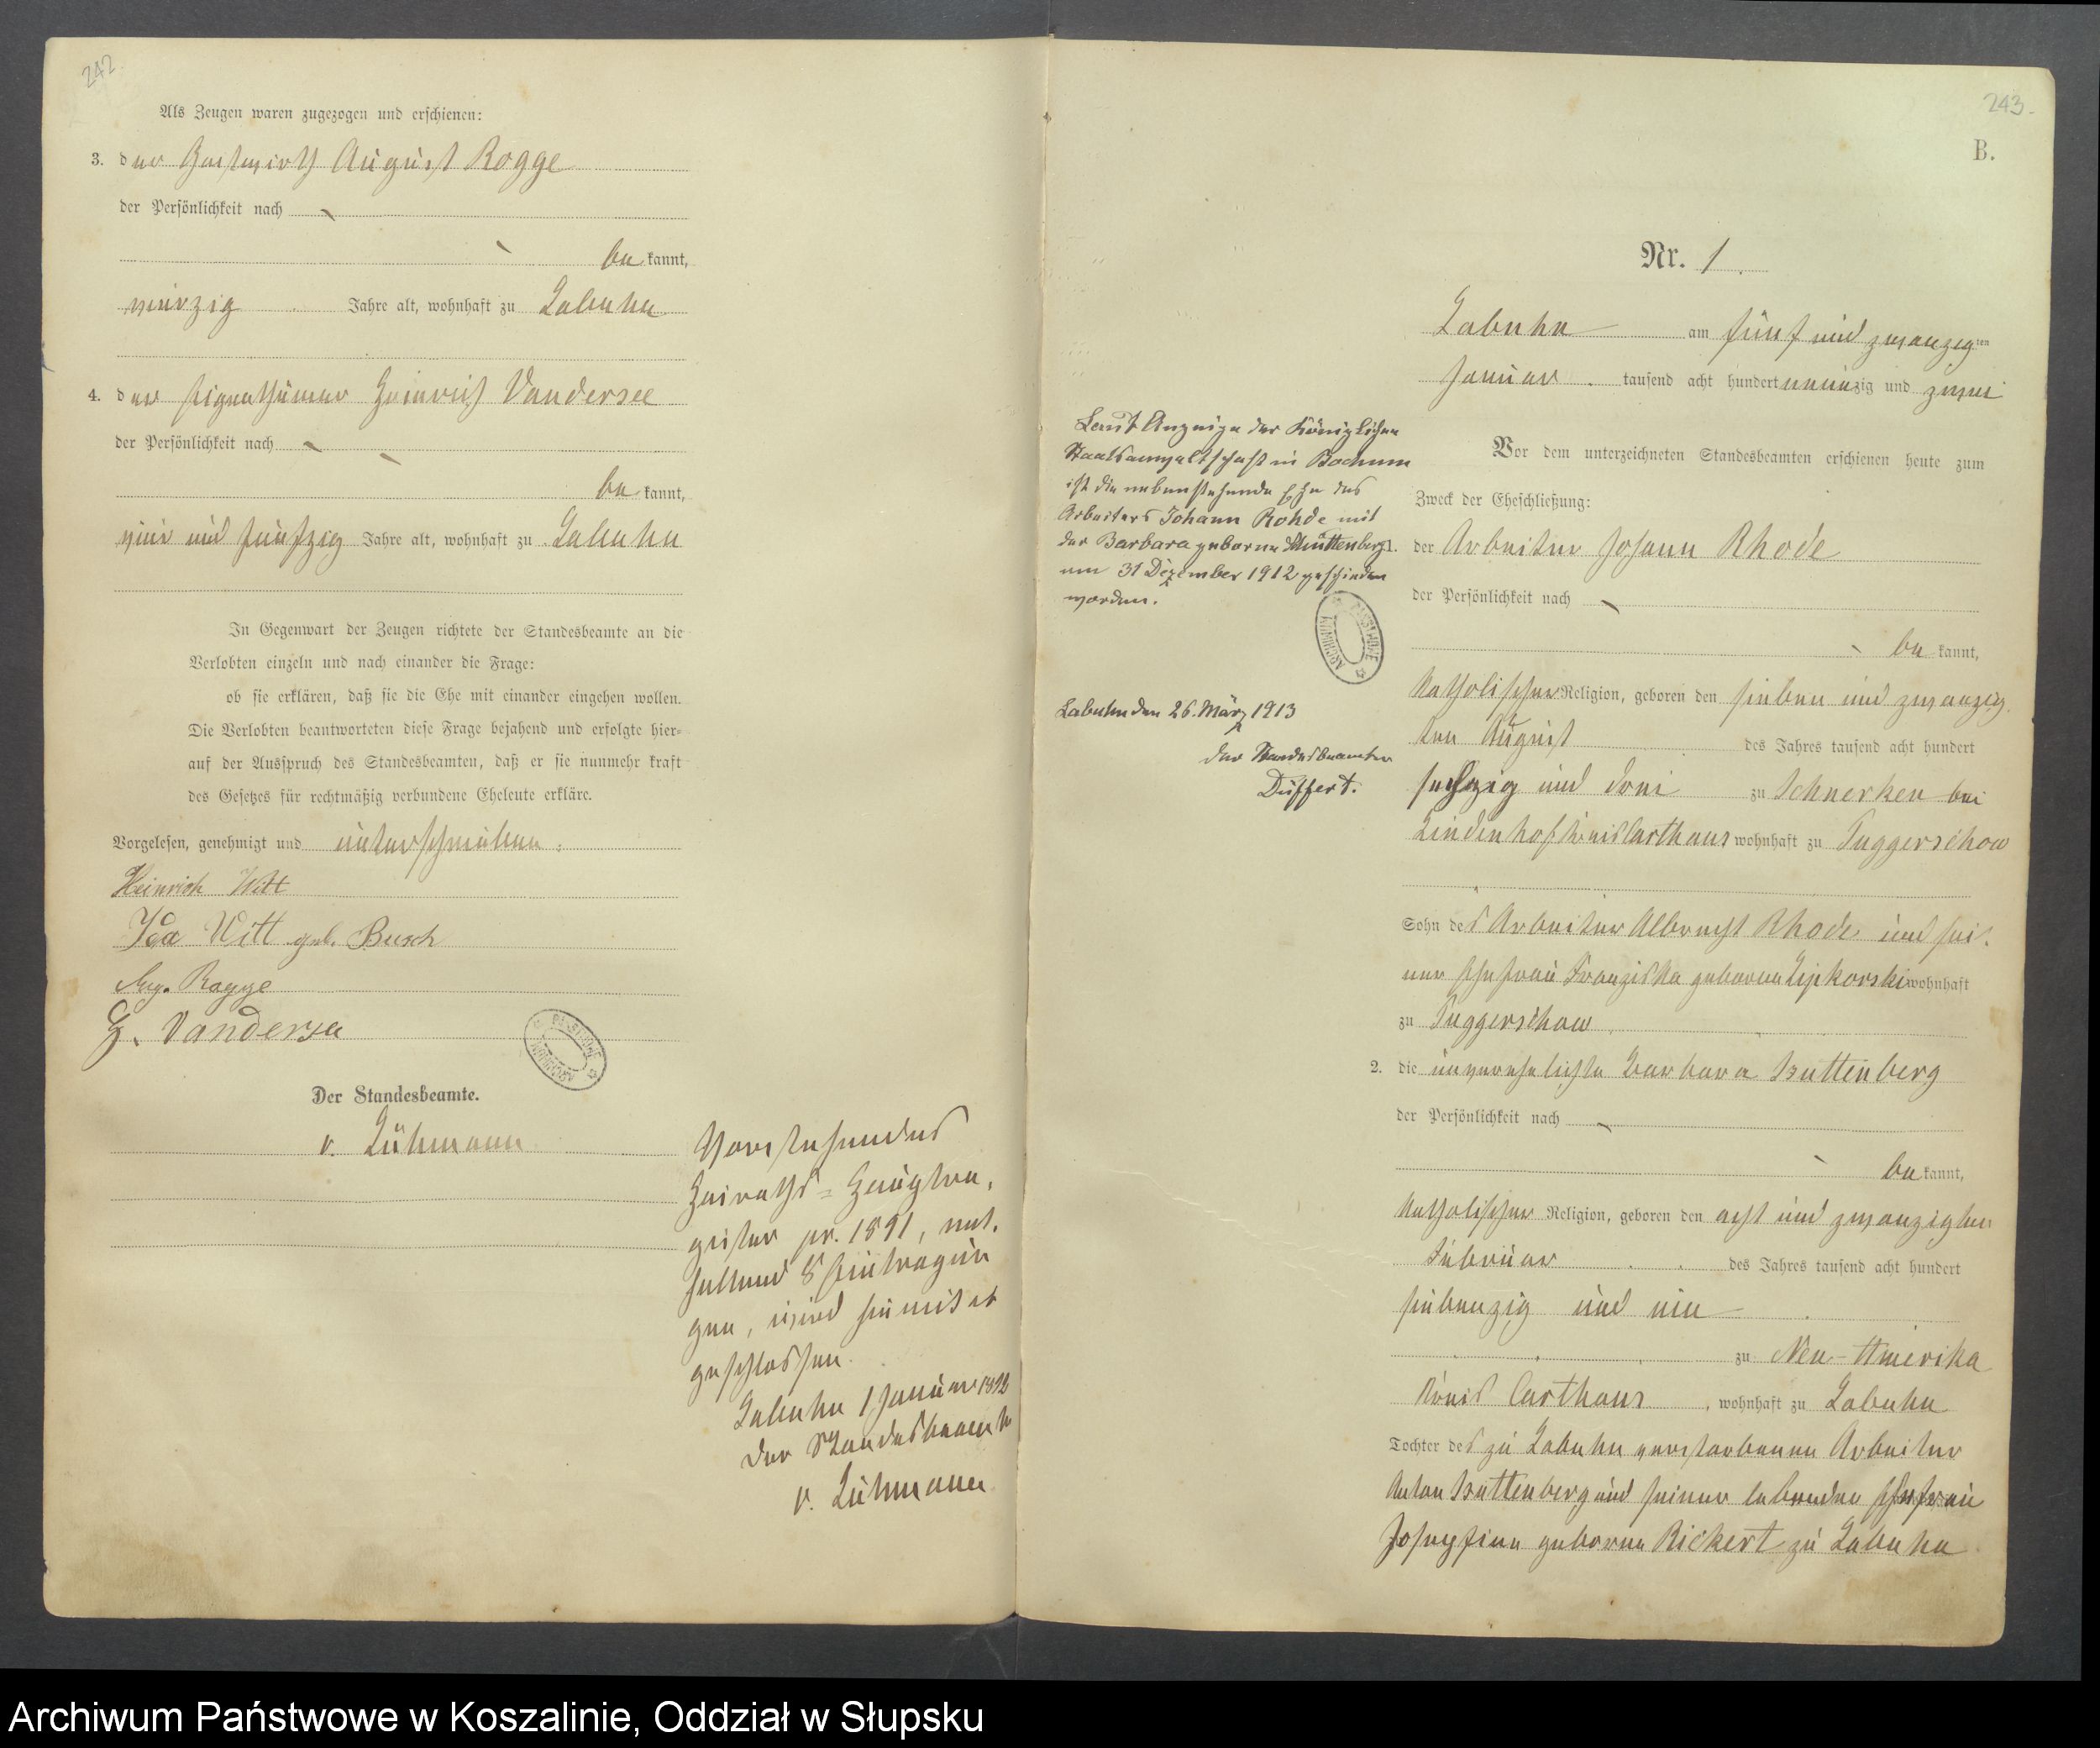 242.
Als Zeugen waren zugezogen und erschienen:
3. der Gastwirth August Rogge
der Persönlichkeit nach
be kannt,
vierzig Jahre alt, wohnhaft zu Labuhn
4. der Eigenthümer Heinrich Vandersee
der Persönlichkeit nach
be kannt,
vier und fünfzig Jahre alt, wohnhaft zu Labuhn
In Gegenwart der Zeugen richtete der Standesbeamte an die
Verlobten einzeln und nach einander die Frage:
ob sie erklären, daß sie die Ehe mit einander eingehen wollen.
Die Verlobten beantworteten diese Frage bejahend und erfolgte hier-
auf der Ausspruch des Standesbeamten, daß er sie nunmehr kraft
des Gesetzes für rechtmäßig verbundene Eheleute erkläre.
Vorgelesen, genehmigt und unterschrieben:
Heinrich Witt
Ida Witt geb. Busch
Aug. Rogge
H. Vandersee
Der Standesbeamte.
v. Lühmann
Vorstehendes
Heiraths-Hauptre-
gister pr. 1891, ent-
haltend 8 Eintragun
gen, wird hiermit ab
geschlossen.
Labuhn 1 Januar 1892
Der Standesbeamte
v. Lühmann
243.
B.
Nr. 1.
Labuhn am fünf und zwanzig ten
Januar tausend acht hundert neunzig und zwei
Vor dem unterzeichneten Standesbeamten erschienen heute zum
Zweck der Eheschließung:
der Arbeiter Johann Rhode
der Persönlichkeit nach
be kannt,
katholischer Religion, geboren den sieben und zwanzig
ten August des Jahres tausend acht hundert
sechzig und drei zu Schnerken bei
Lindenhof Kreis Carthaus wohnhaft zu Puggerschow
Sohn des Arbeiter Albrecht Rhode und sei-
ner Ehefrau Franziska geborne Lipkorski wohnhaft
zu Puggerschow
2. die unverehelichte Barbara Huttenberg
der Persönlichkeit nach
be kannt,
katholischer Religion, geboren den acht und zwanzigten
Februar des Jahres tausend acht hundert
siebenzig und ein
zu Neu-Amerika
Kreis Carthaus, wohnhaft zu Labuhn
Tochter des zu Labuhn verstorbenen Arbeiter
Anton Huttenberg und seiner lebenden Ehefrau
Josephine geborne Rickert zu Labuhn
Laut Anzeige der Königlichen
Staatsanwaltschaft in Bochum
ist die nebenstehende Ehe des
Arbeiters Johann Rohde mit
der Barbara geborne Huttenberg
am 31 Dezember 1912 geschieden
worden.
Labuhn den 26. März 1913
Der Standesbeamter
Düffert.
ARCHIWUM PAŃSTWOWE
ARCHIWUM PAŃSTWOWE
Archiwum Państwowe w Koszalinie, Oddział w Słupsku